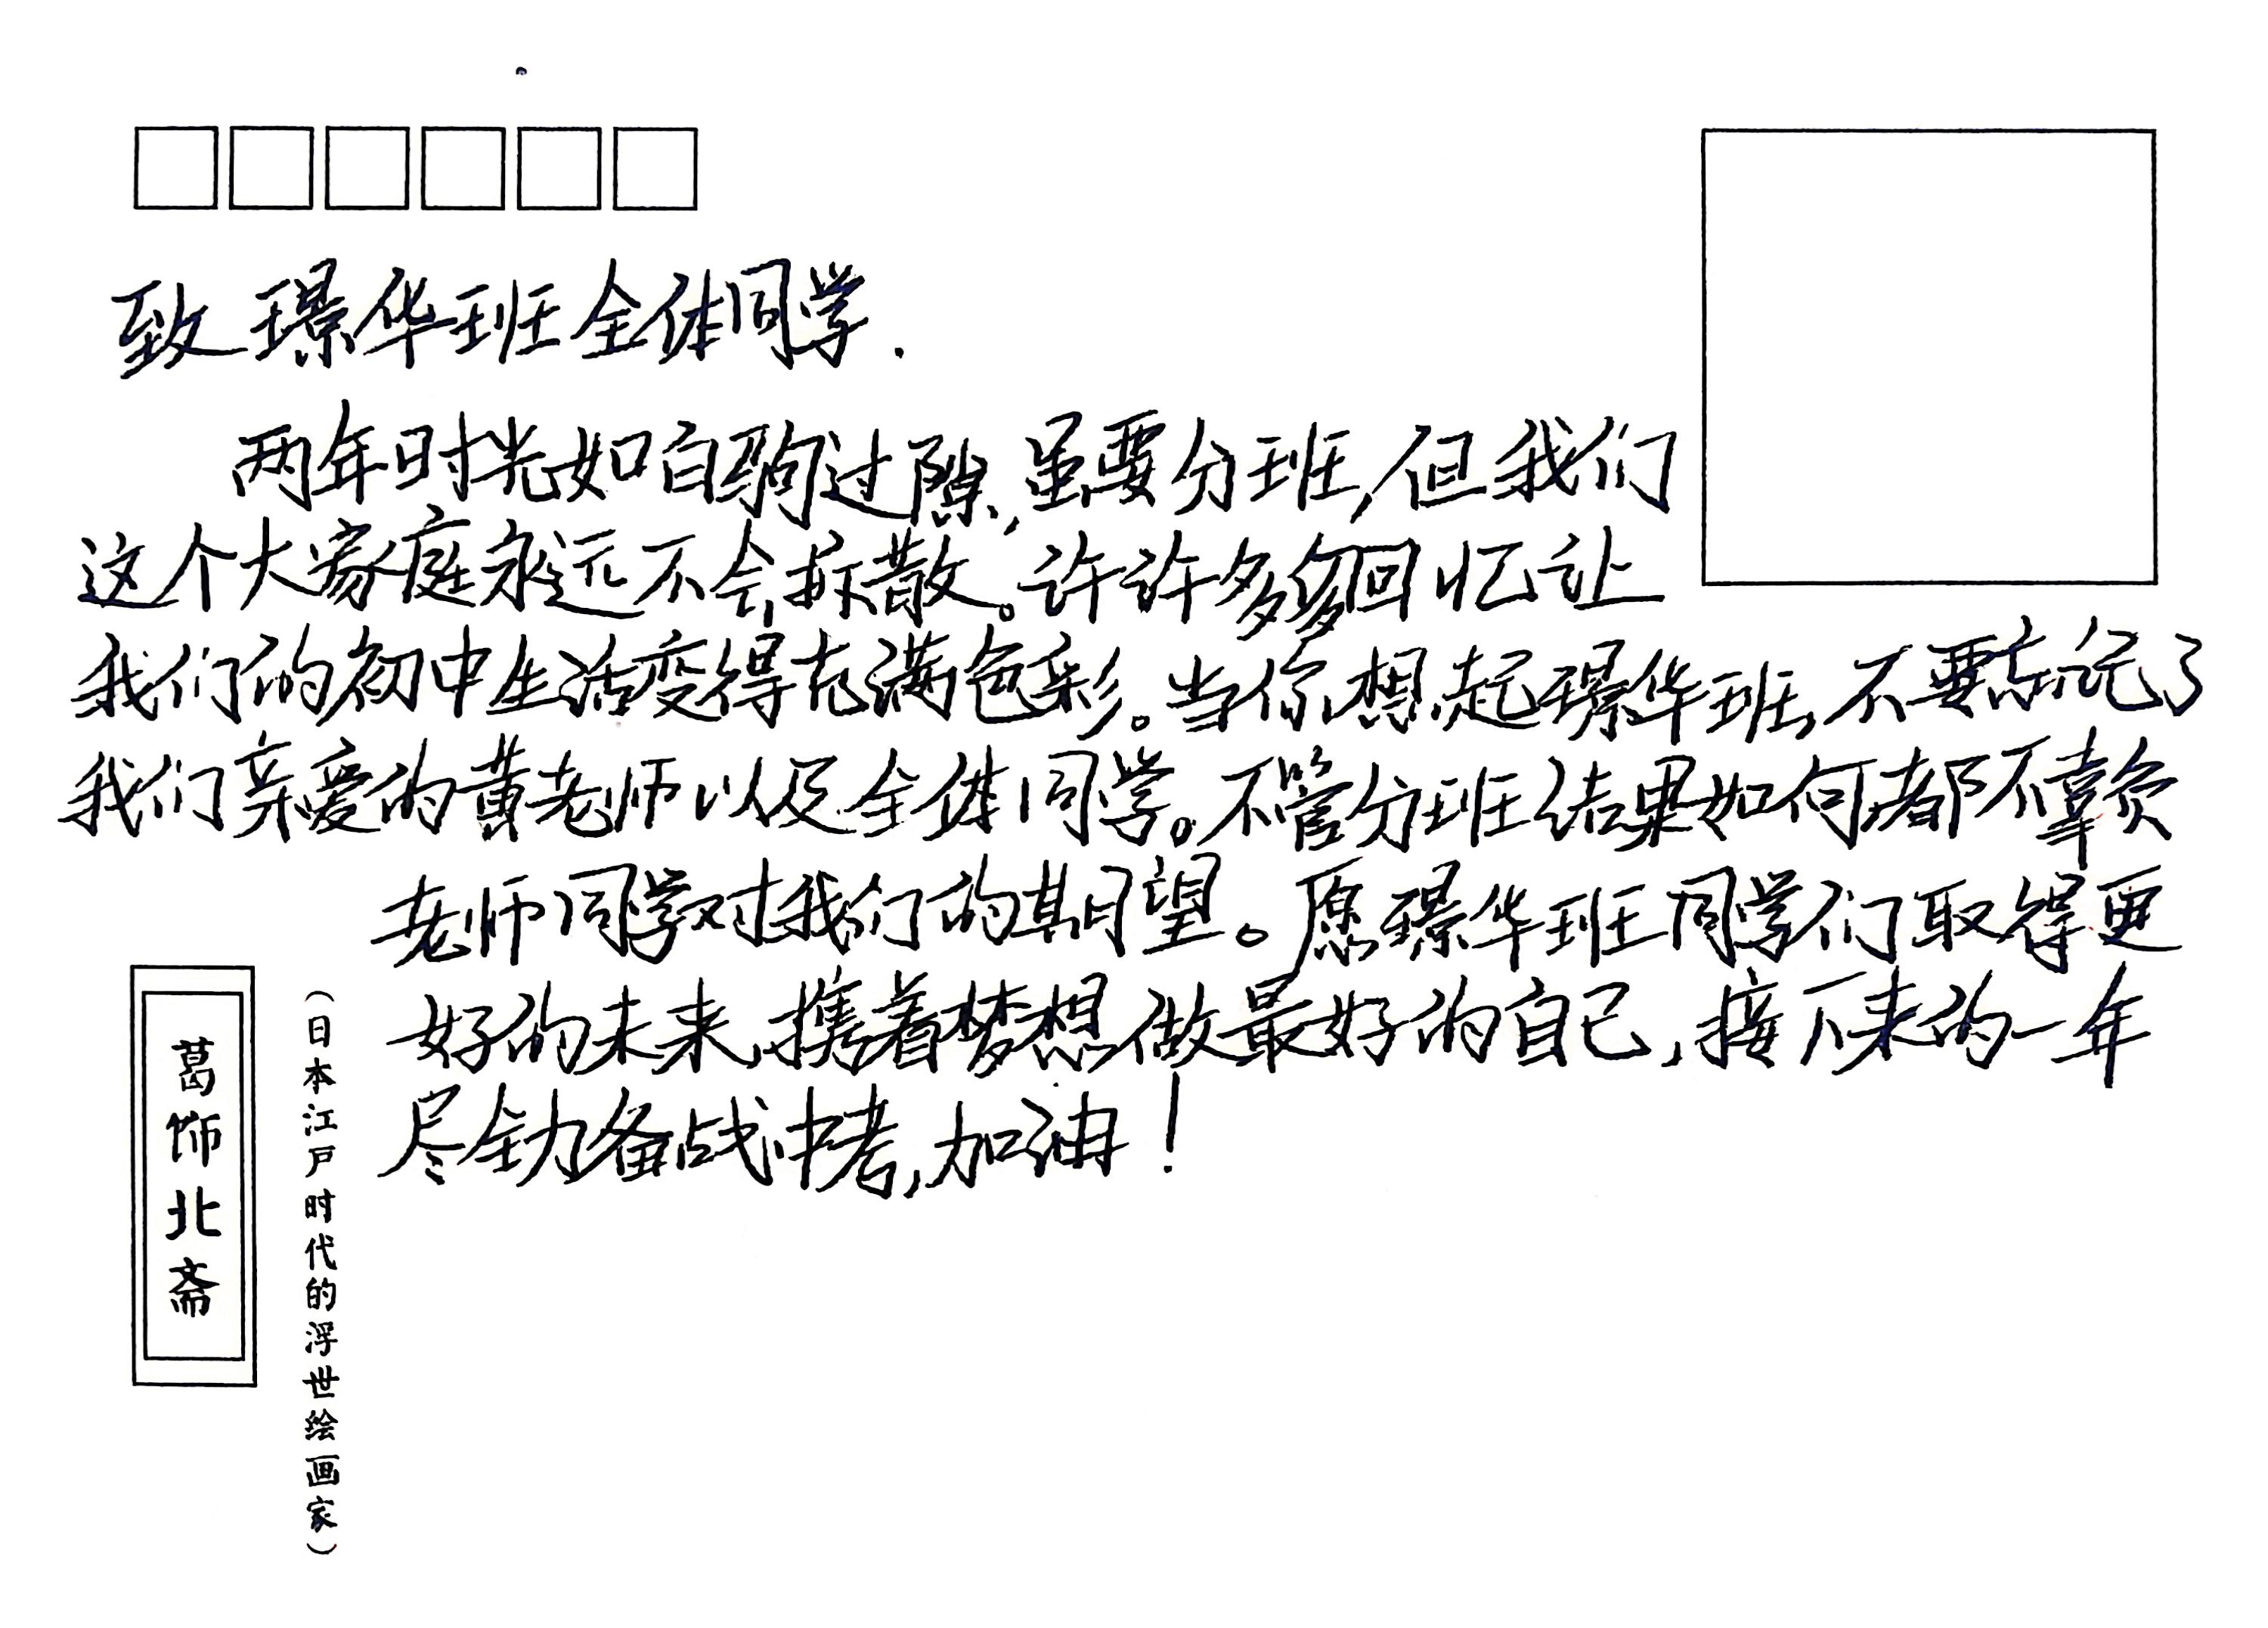 致璟华班全体同学.
两年时光如白驹过隙,虽要分班,但我们
这个大家庭永远不会拆散。许许多多回忆让
我们的初中生活变得充满色彩。当你想起璟华班,不要忘记了
我们亲爱的黄老师以及全体同学。不管分班结果如何都不辜负
老师同学对我们的期望。愿璟华班同学们取得更
好的未来,携着梦想做最好的自己,接下来的一年
尽全力备战中考,加油!
葛饰北斋
(日本江户时代的浮世绘画家)